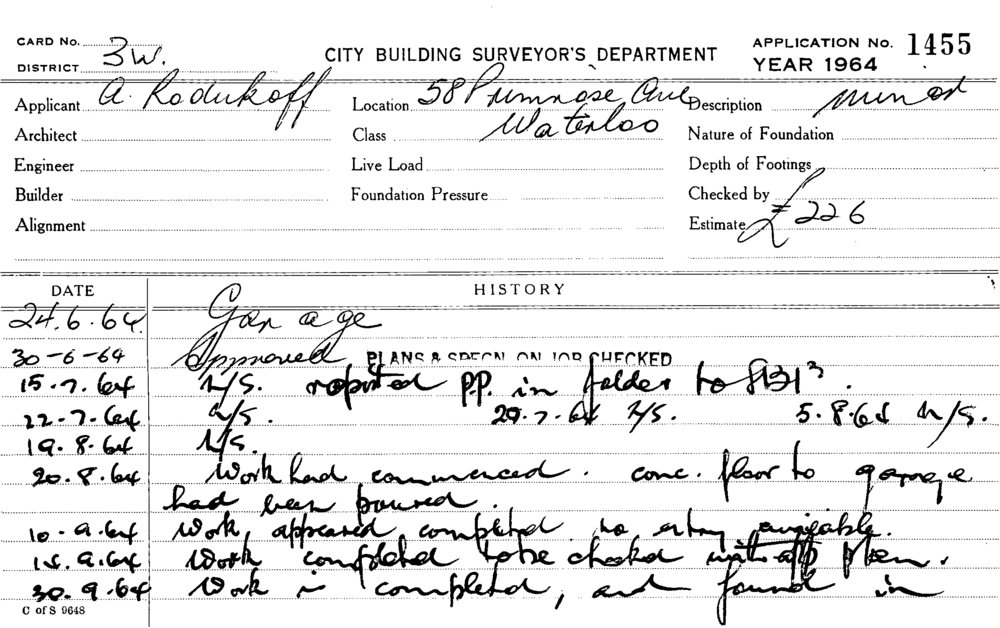 CARD No. 3W.
DISTRICT
CITY BUILDING SURVEYOR'S DEPARTMENT
APPLICATION No. 1455
YEAR 1964
Applicant A. Rodukoff Location 58 Primrose Ave Description minor
Architect Class Waterloo Nature of Foundation
Engineer Live Load Depth of Footings
Builder Foundation Pressure Checked by
Alignment Estimate £226
DATE HISTORY
24.6.64. Garage
30-6-64 Approved PLANS & SPECN. ON JOB CHECKED
15.7.64 N/S. reported P.P. in folder to
22.7.64 N/S. 29.7.64 N/S. 5.8.64 N/S.
19.8.64 N/S.
20.8.64 Work had commenced. conc. floor to garage
had been poured.
10.9.64 Work appeared completed no entry available.
15.9.64 Work completed to be checked with app plan.
30.9.64 Work is completed, and found in
C of S 9648